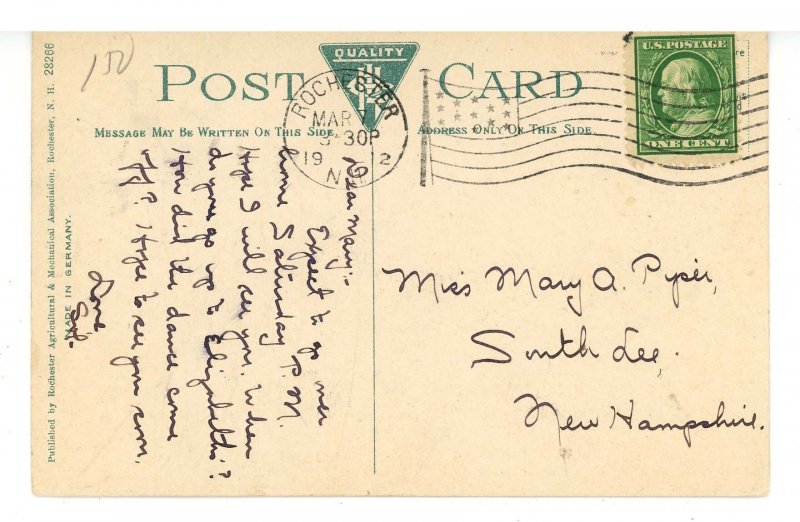 150
POST CARD
QUALITY
MESSAGE MAY BE WRITTEN ON THIS SIDE
ADDRESS ONLY ON THIS SIDE
ROCHESTER
MAR 7
3-30P
1912
N.H.
U.S. POSTAGE
ONE CENT
Dear Mary:-
Expect to go
home Saturday P.M.
Hope I will see you. When
do you go up to Elizabeth's?
How did the dance come
off? Hope to see you soon.
Love
Miss Mary A. Pyser,
South Lee,
New Hampshire.
Published by Rochester Agricultural & Mechanical Association, Rochester, N. H. 28266
MADE IN GERMANY.